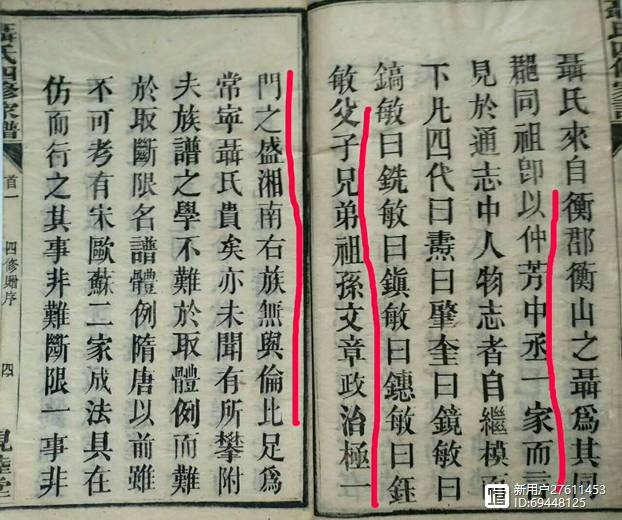 聶氏四修家譜
聶氏來自衡郡衡山之聶爲其
同祖卽以仲芳中丞一家而
見於通志中人物志者自繼模
下凡四代曰燾曰肇奎曰鏡敏曰
鎬敏曰銑敏曰鎭敏曰鏸敏曰鉦
敏父子兄弟祖孫文章政治極一
門之盛湘南右族無與倫比足爲
常寧聶氏貴矣亦未聞有所攀附
夫族譜之學不難於取體例而難
於取斷限名譜體例隋唐以前雖
不可考有宋歐蘇二家成法具在
仿而行之其事非難斷限一事非
聶氏四修家譜
首一
四修贈序
四
新用户27611453
ID:69448125